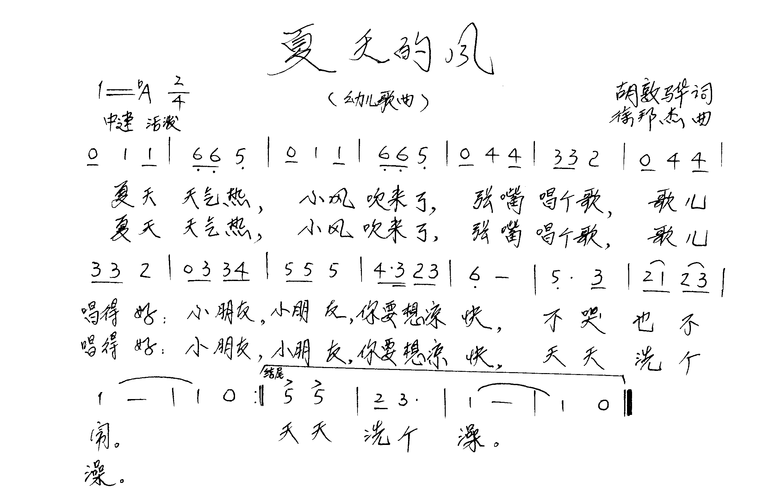 夏天的风
1=♭A 2/4 （幼儿歌曲） 胡敦骅词
中速 活泼 徐邦杰曲
0 1 1 | 6 6 5 | 0 1 1 | 6 6 5 | 0 4 4 | 3 3 2 | 0 4 4 |
夏天 天气热， 小风 吹来了， 张嘴 唱个歌， 歌儿
夏天 天气热， 小风 吹来了， 张嘴 唱个歌， 歌儿
3 3 2 | 0 3 3 4 | 5 5 5 | 4·3 2 3 | 6 — | 5· 3 | 2 1 2 3 |
唱得 好： 小朋友，小朋友，你要想凉快， 不哭也不
唱得 好： 小朋友，小朋友，你要想凉快， 天天洗个
结尾
1 — | 1 0 :‖ 5 5 | 2 3· | 1 — | 1 0 ‖
闹。 天天 洗个 澡。
澡。